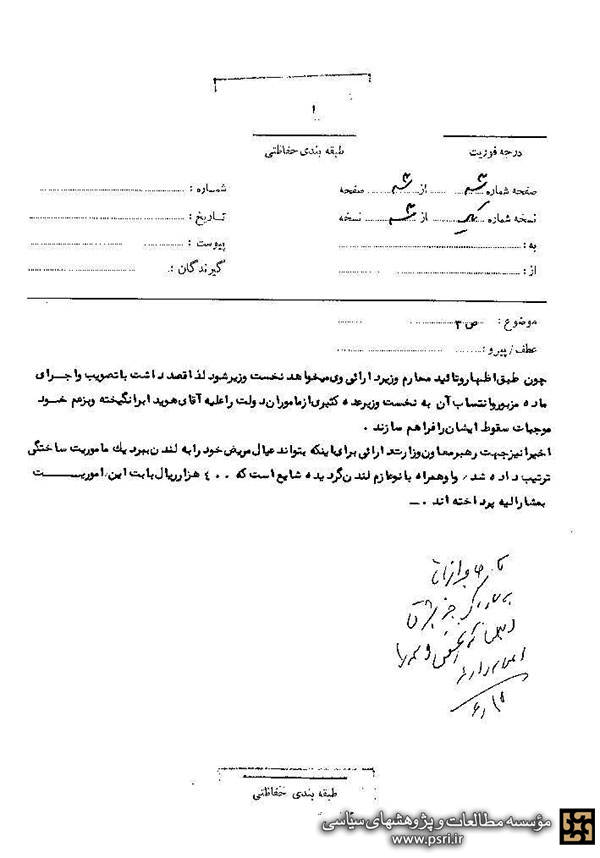 ۱
درجه فوریت
طبقه بندی حفاظتی
صفحه شماره ........ از ........ صفحه
شماره :
نسخه شماره یک از ........ نسخه
تاریخ :
به :
پیوست :
از :
گیرندگان :
موضوع : ص ۳
عطف / پیرو :
چون طبق اظهار و تائید محارم وزیر دارائی وی میخواهد نخست وزیر شود لذا قصد داشت با تصویب و اجرای
ماده مزبور و انتساب آن به نخست وزیر عده کثیری از ماموران دولت را علیه آقای هویدا برانگیخته و بزعم خود
موجبات سقوط ایشان را فراهم سازند .
اخیرا نیز جهت رهبر معاون وزارت دارائی برای اینکه بتواند عیال مریض خود را به لندن ببرد یک ماموریت ساختگی
ترتیب داده شد و او همراه بانو عازم لندن گردیده شایع است که ۴۰۰ هزار ریال بابت این ماموریت
بمشارالیه پرداخته اند .
طبقه بندی حفاظتی
مؤسسه مطالعات و پژوهشهای سیاسی
www.psri.ir